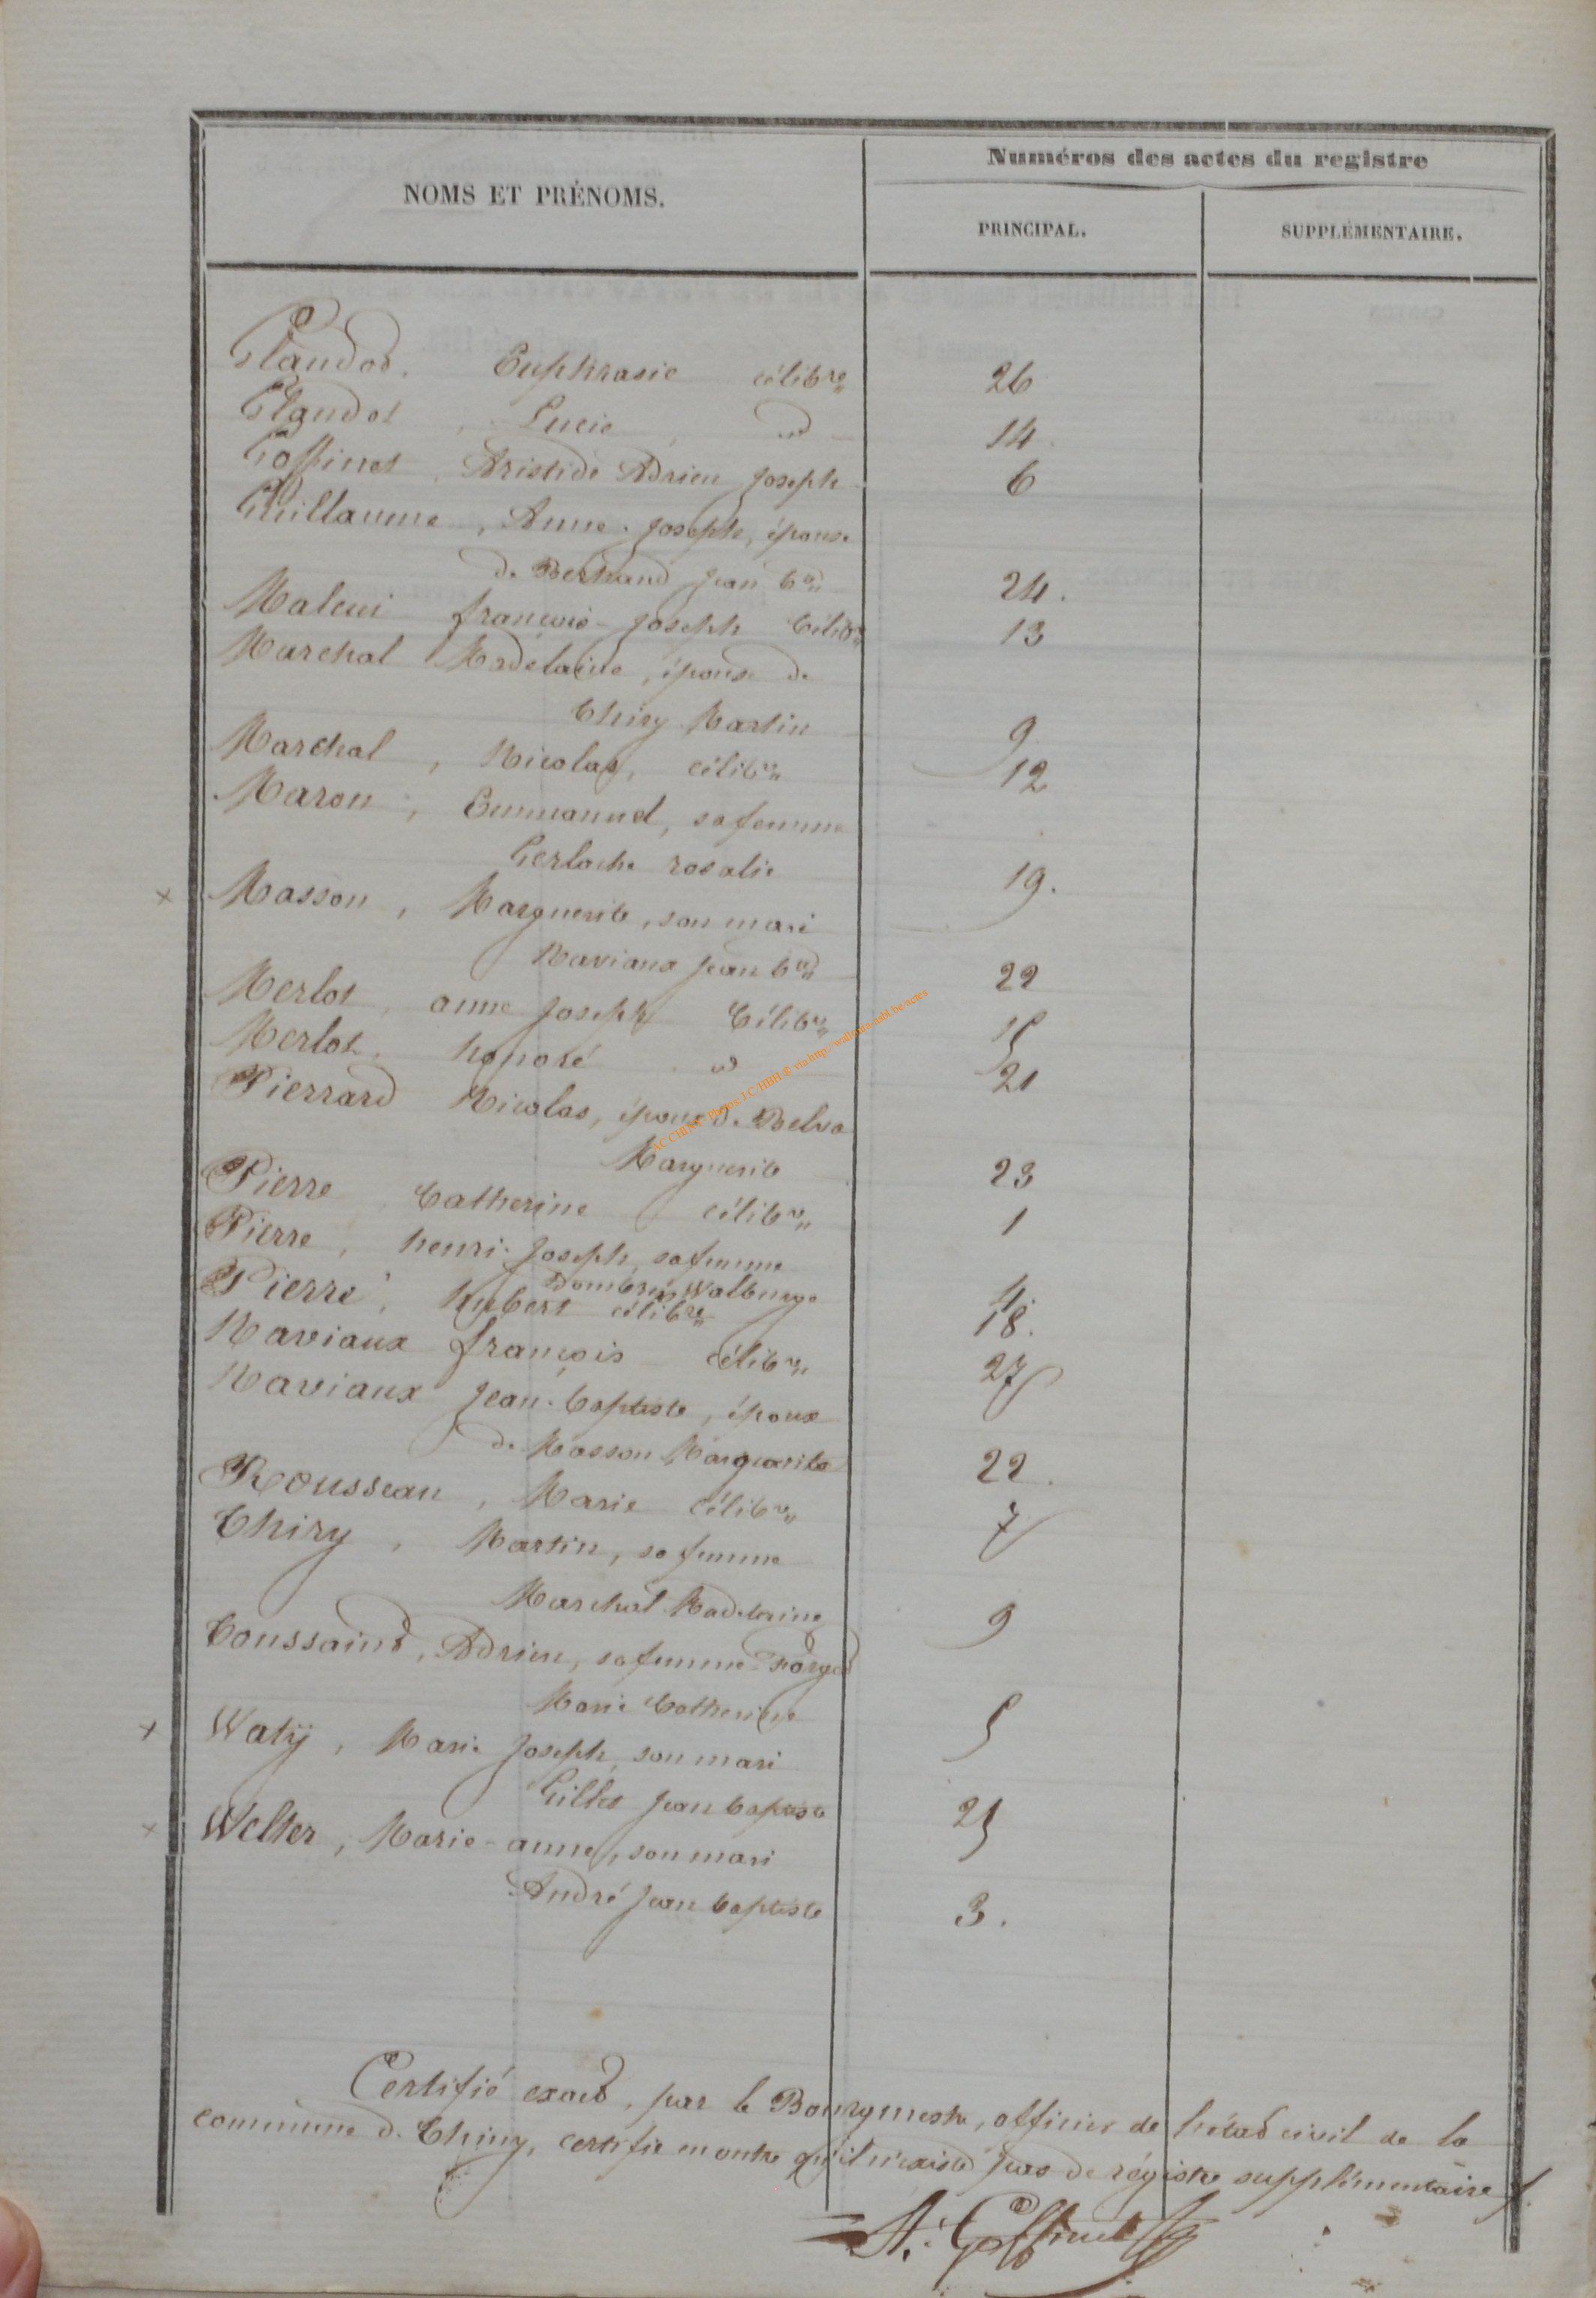 Numéros des actes du registre
NOMS ET PRÉNOMS.
PRINCIPAL.
SUPPLÉMENTAIRE.
Glaudot. Euphrasie célibre 26
Glaudot, Lucie, id 14
Goffinet, Aristide Adrien Joseph 6
Guillaume, Anne-Joseph, épouse
de Bertrand Jean Bte 24.
Maleui françois-Joseph Célibre 13
Marchal Madelaine, épouse de
Thiry Martin 9
Marchal, Nicolas, célibre 12
Maron, Emmanuel, sa femme
Gerlache rosalie 19.
x Masson, Marguerite, son mari
Naviaux Jean Bte 22
Merlot, anne Joseph Célibre 15
Merlot honoré id 21
Pierrard Nicolas, époux de Belva
Marguerite 23
Pierre Catherine célibre 1
Pierre, henri-Joseph, sa femme
Walburge 4.
Pierre, hubert célibre 18.
Naviaux françois célibre 27
Naviaux Jean-baptiste, époux
de Masson Marguerite 22.
Rousseau, Marie célibre 7
Thiry, Martin, sa femme
Marchal Madelaine 9
Toussaint, Adrien, sa femme Forget
Marie Catherine 5
x Waty, Marie Joseph, son mari
Gilles Jean baptiste 25
x Welter, Marie-anne, son mari
André Jean baptiste 3.
Certifié exact, par le Bourgmestre, officier de l'état civil de la
commune de Chiny, certifie en outre qu'il n'existe pas de régistre supplémentaire.
A. Goffinet